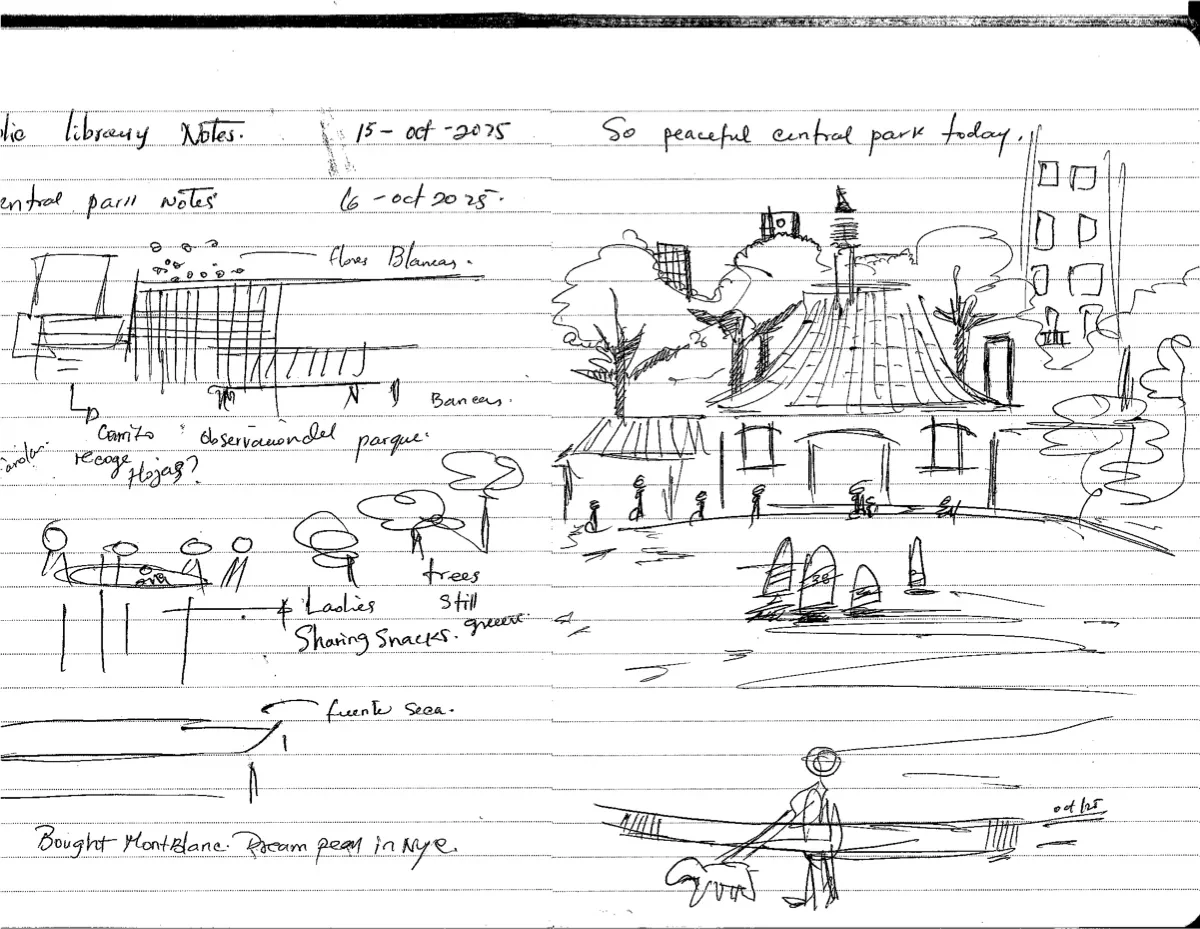 lic library Notes. 15-oct-2025
entral park notes 16-oct 2025.
flores Blancas.
Bancas.
Carrito
recoge
Hojas?
observación del parque.
trees
still
green
Ladies
Sharing Snacks.
fuente seca.
Bought MontBlanc. Dream pen in NYC.
So peaceful central park today.
oct/25